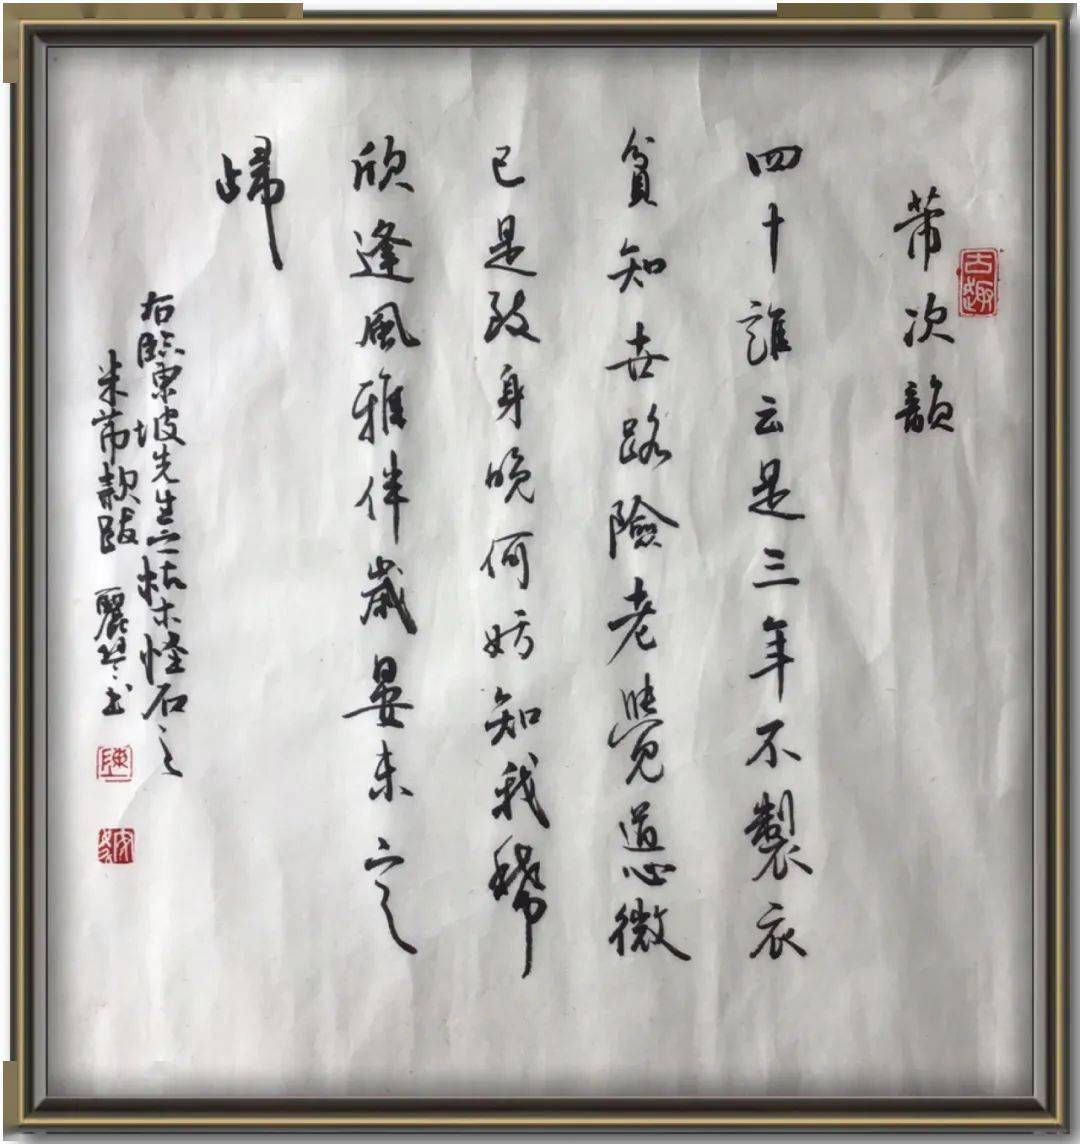 芾次韻
古趣
四十誰云是三年不製衣
貧知世路險老覺道心微
已是致身晚何妨知我稀
欣逢風雅伴歲晏未言
歸
右臨東坡先生之枯木怪石之
米芾款跋 麗書
陳